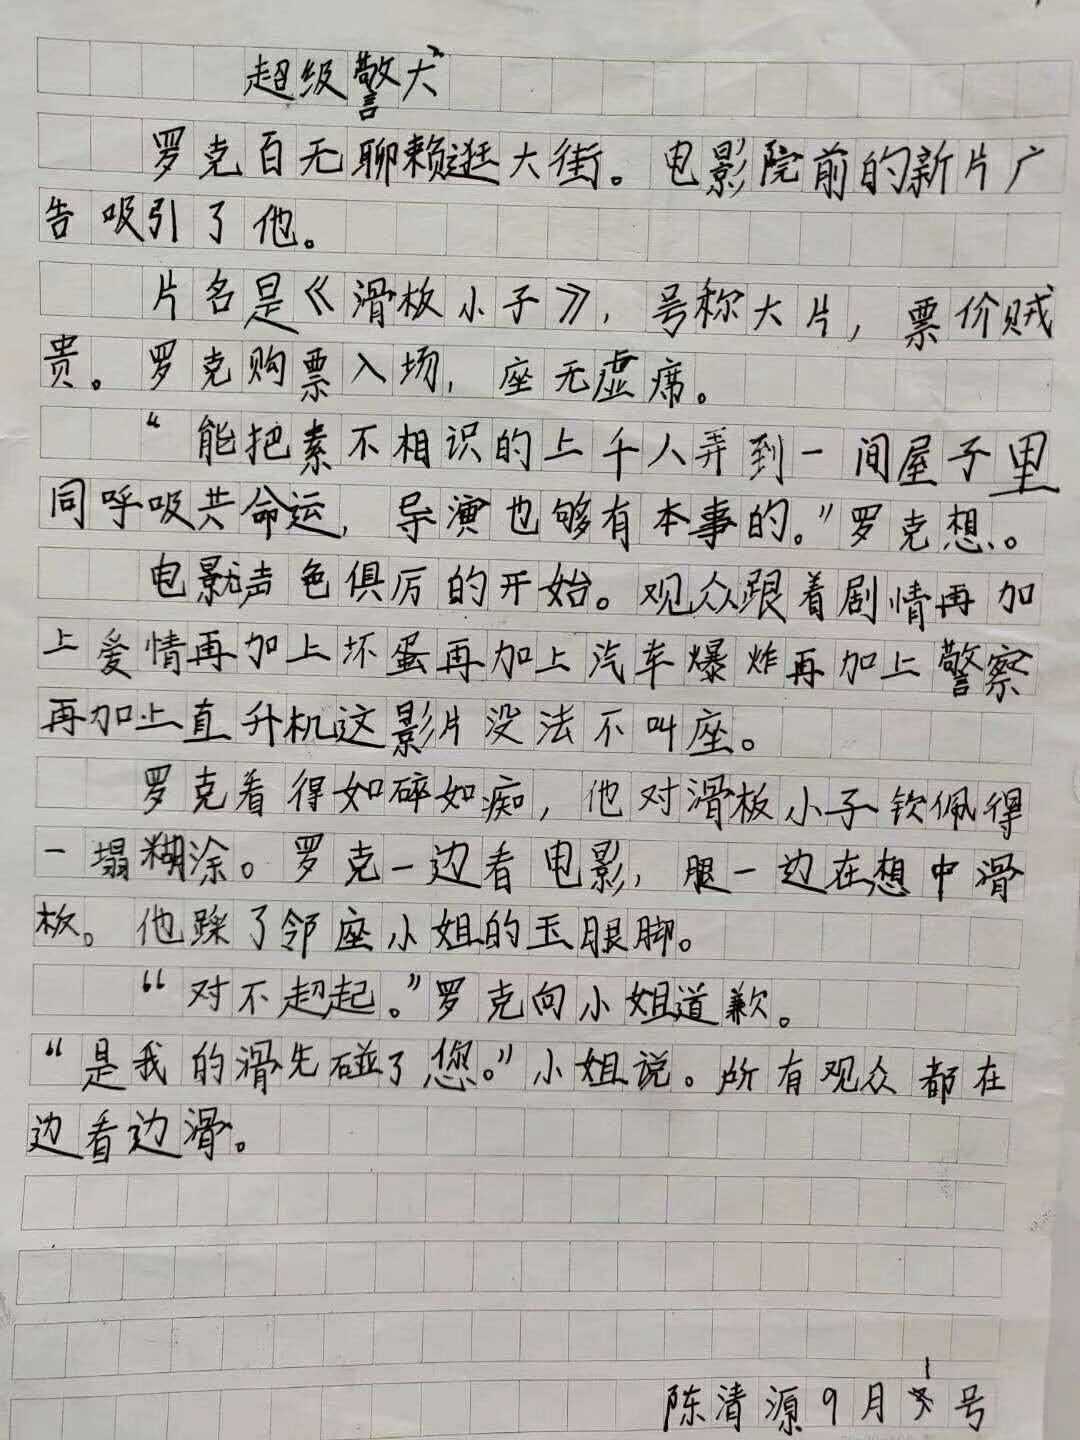 超级警犬
罗克百无聊赖逛大街。电影院前的新片广
告吸引了他。
片名是《滑板小子》,号称大片,票价贼
贵。罗克购票入场,座无虚席。
“能把素不相识的上千人弄到一间屋子里
同呼吸共命运,导演也够有本事的。”罗克想。
电影声色俱厉的开始。观众跟着剧情再加
上爱情再加上坏蛋再加上汽车爆炸再加上警察
再加上直升机这影片没法不叫座。
罗克看得如碎如痴,他对滑板小子钦佩得
一塌糊涂。罗克一边看电影,腿一边在想中滑
板。他踩了邻座小姐的玉眼脚。
“对不起起。”罗克向小姐道歉。
“是我的滑先碰了您。”小姐说。所有观众都在
边看边滑。
陈清源9月1号